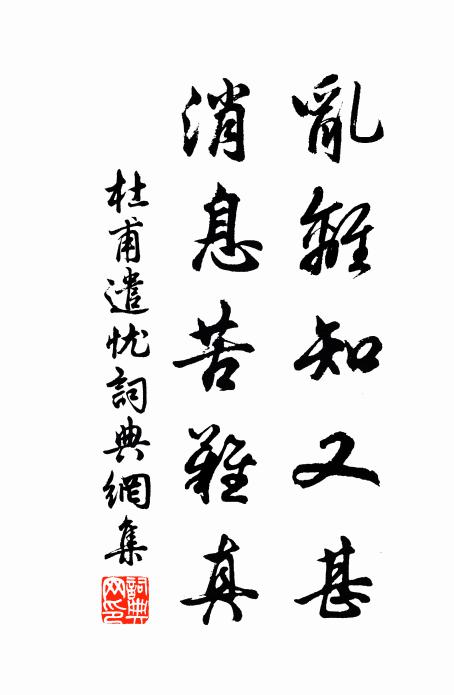 亂離知又甚
消息苦難真
杜甫遣忧詞典網集
詞典
网印